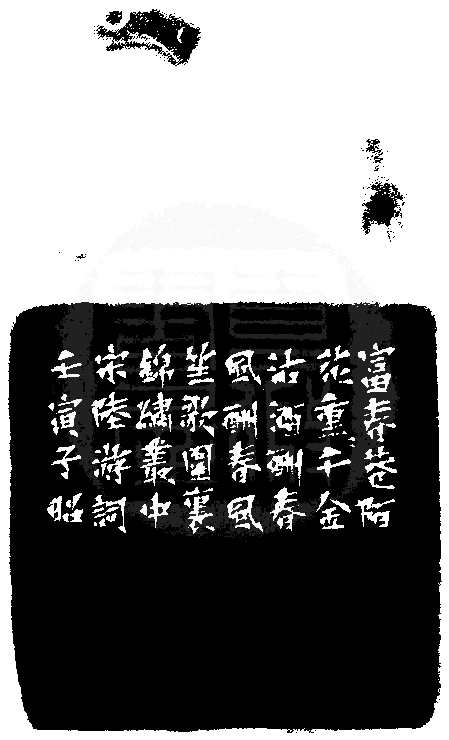 富春巷陌
花重〻千金
沽酒酬春
風酬春風
笙歌圍裏
錦繡叢中
宋陸游詞
壬寅子昭